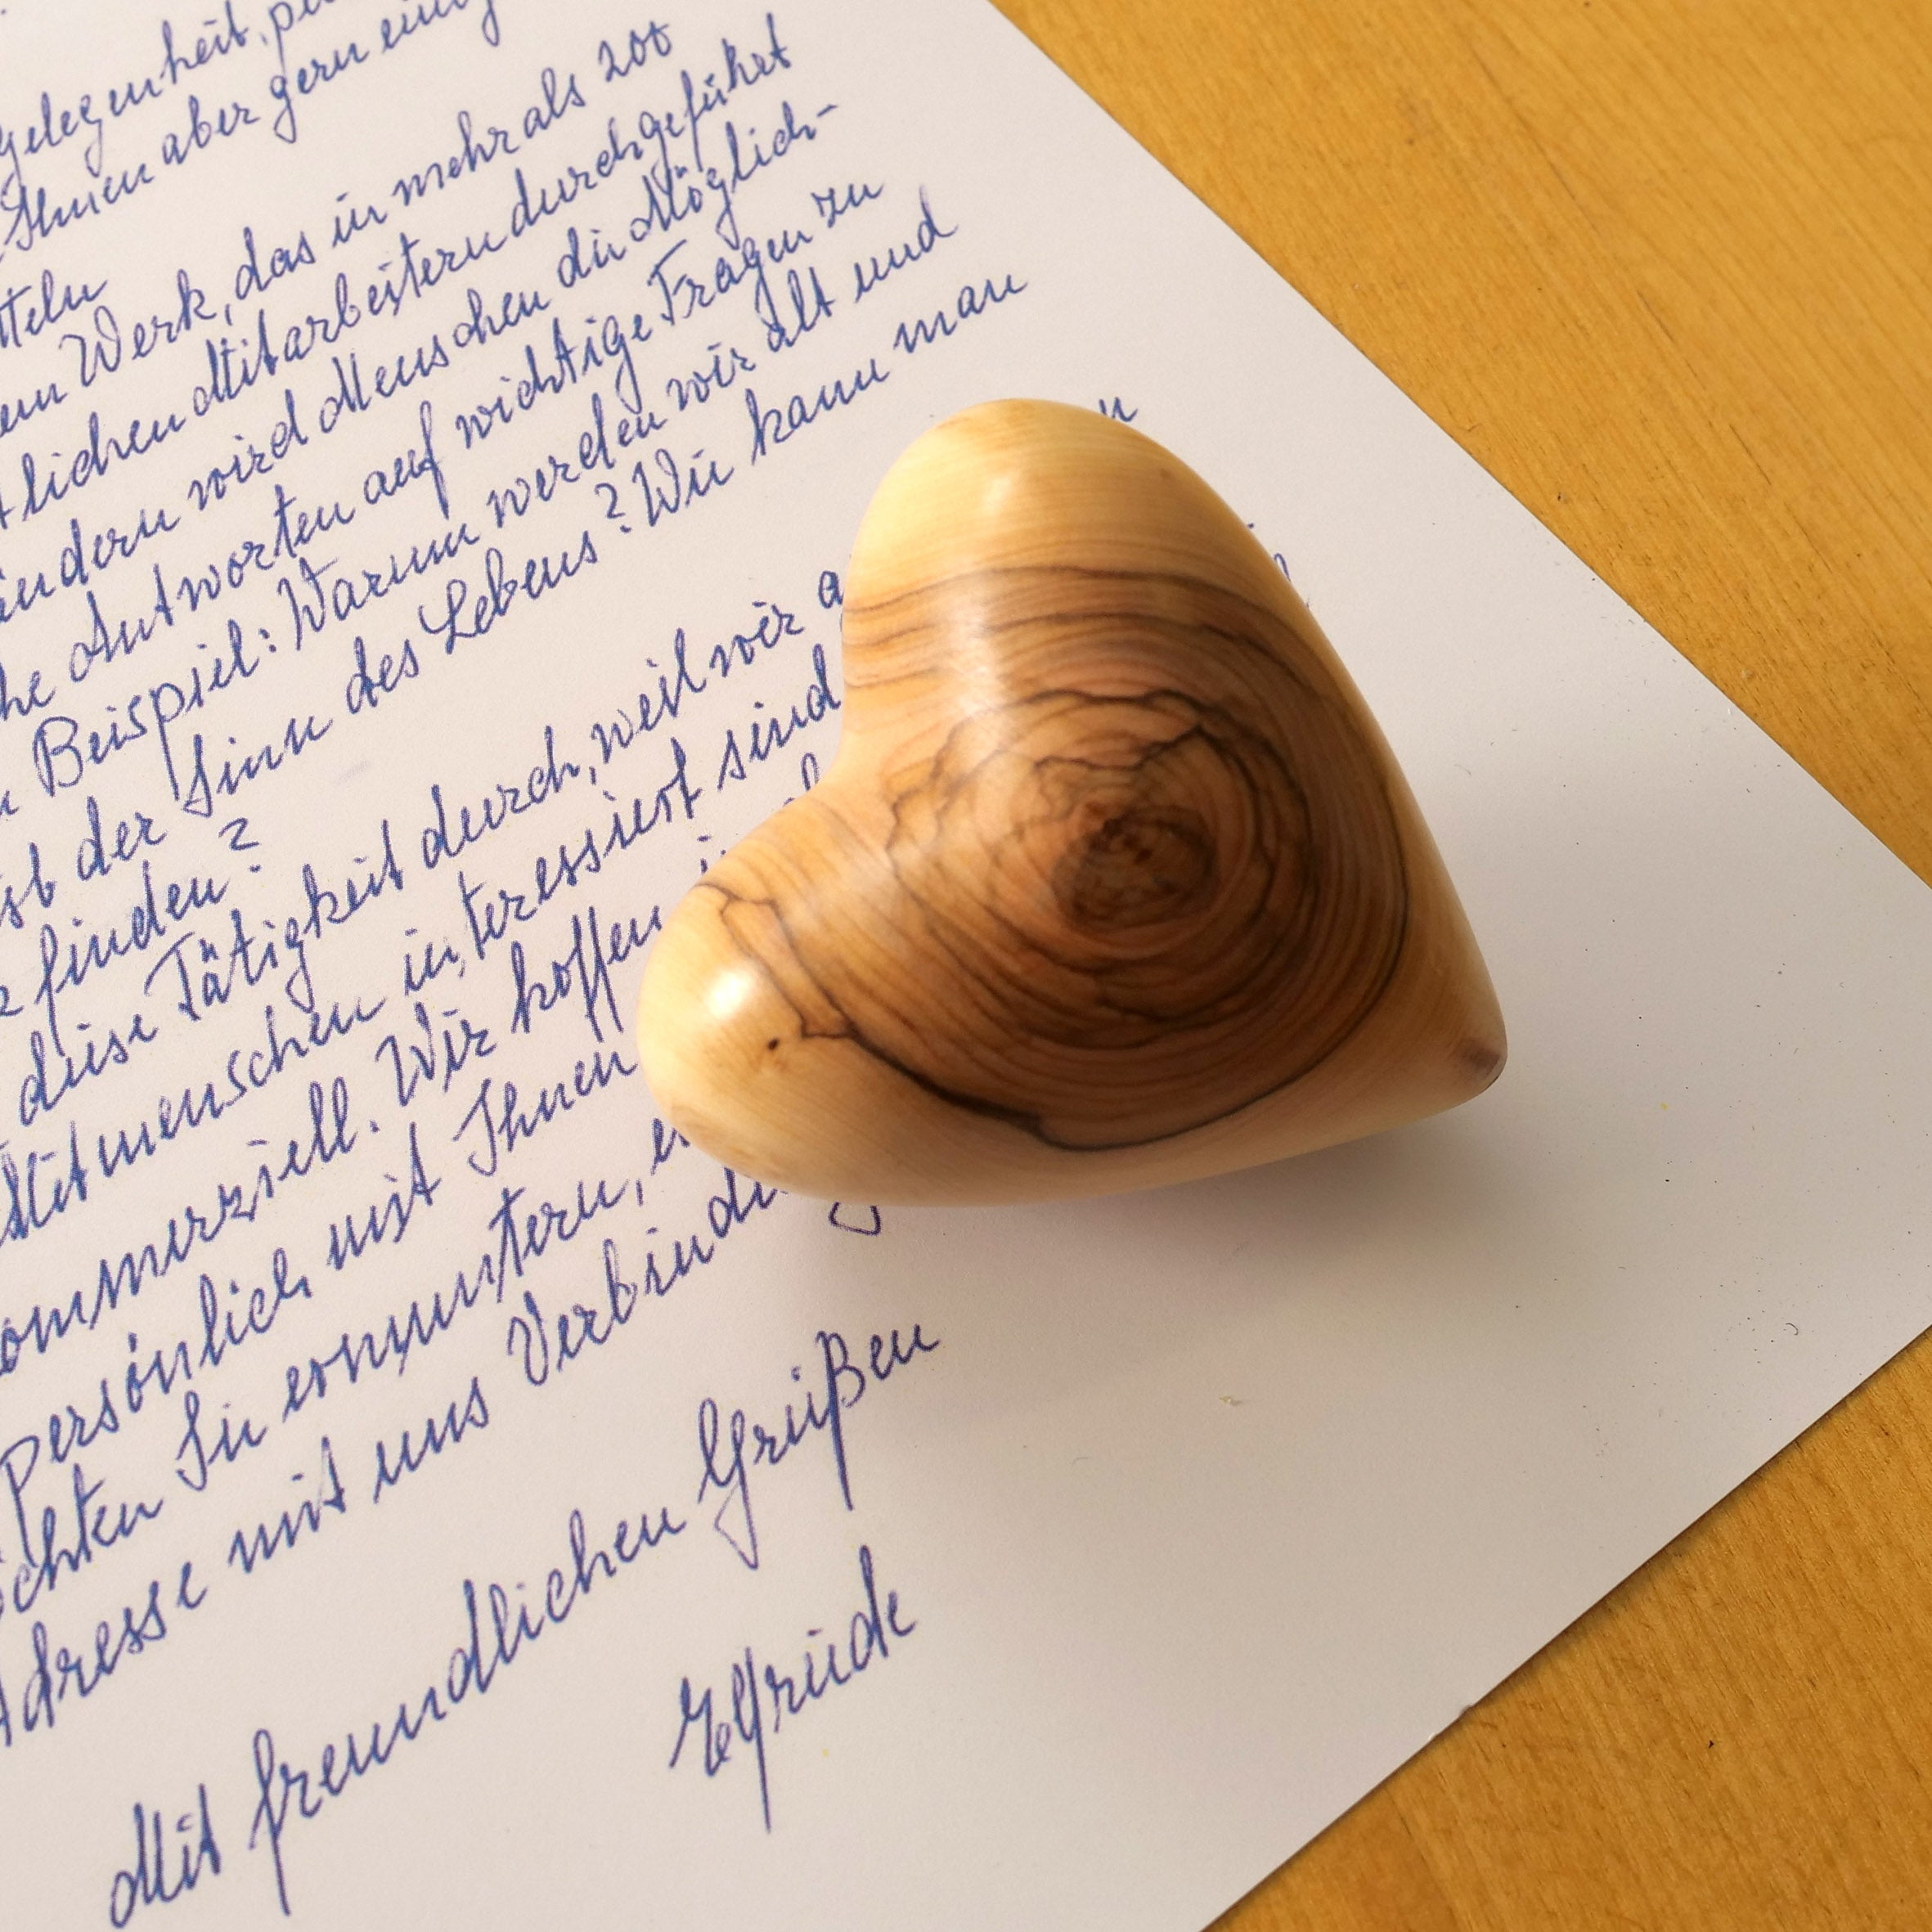 Gelegenheit,
Ihnen aber gern
Werk, das in mehr als 200
lichen Mitarbeitern durchgeführt
ndern wird Menschen die Möglich-
he Antworten auf wichtige Fragen zu
Beispiel: Warum werden wir alt und
der Sinn des Lebens? Wie kann man
finden?
diese Tätigkeit durch, weil wir a
Mitmenschen interessiert sind
ommerziell. Wir hoffen
persönlich mit Ihnen
chten Sie ermuntern,
Adresse mit uns Verbindu
Mit freundlichen Grüßen